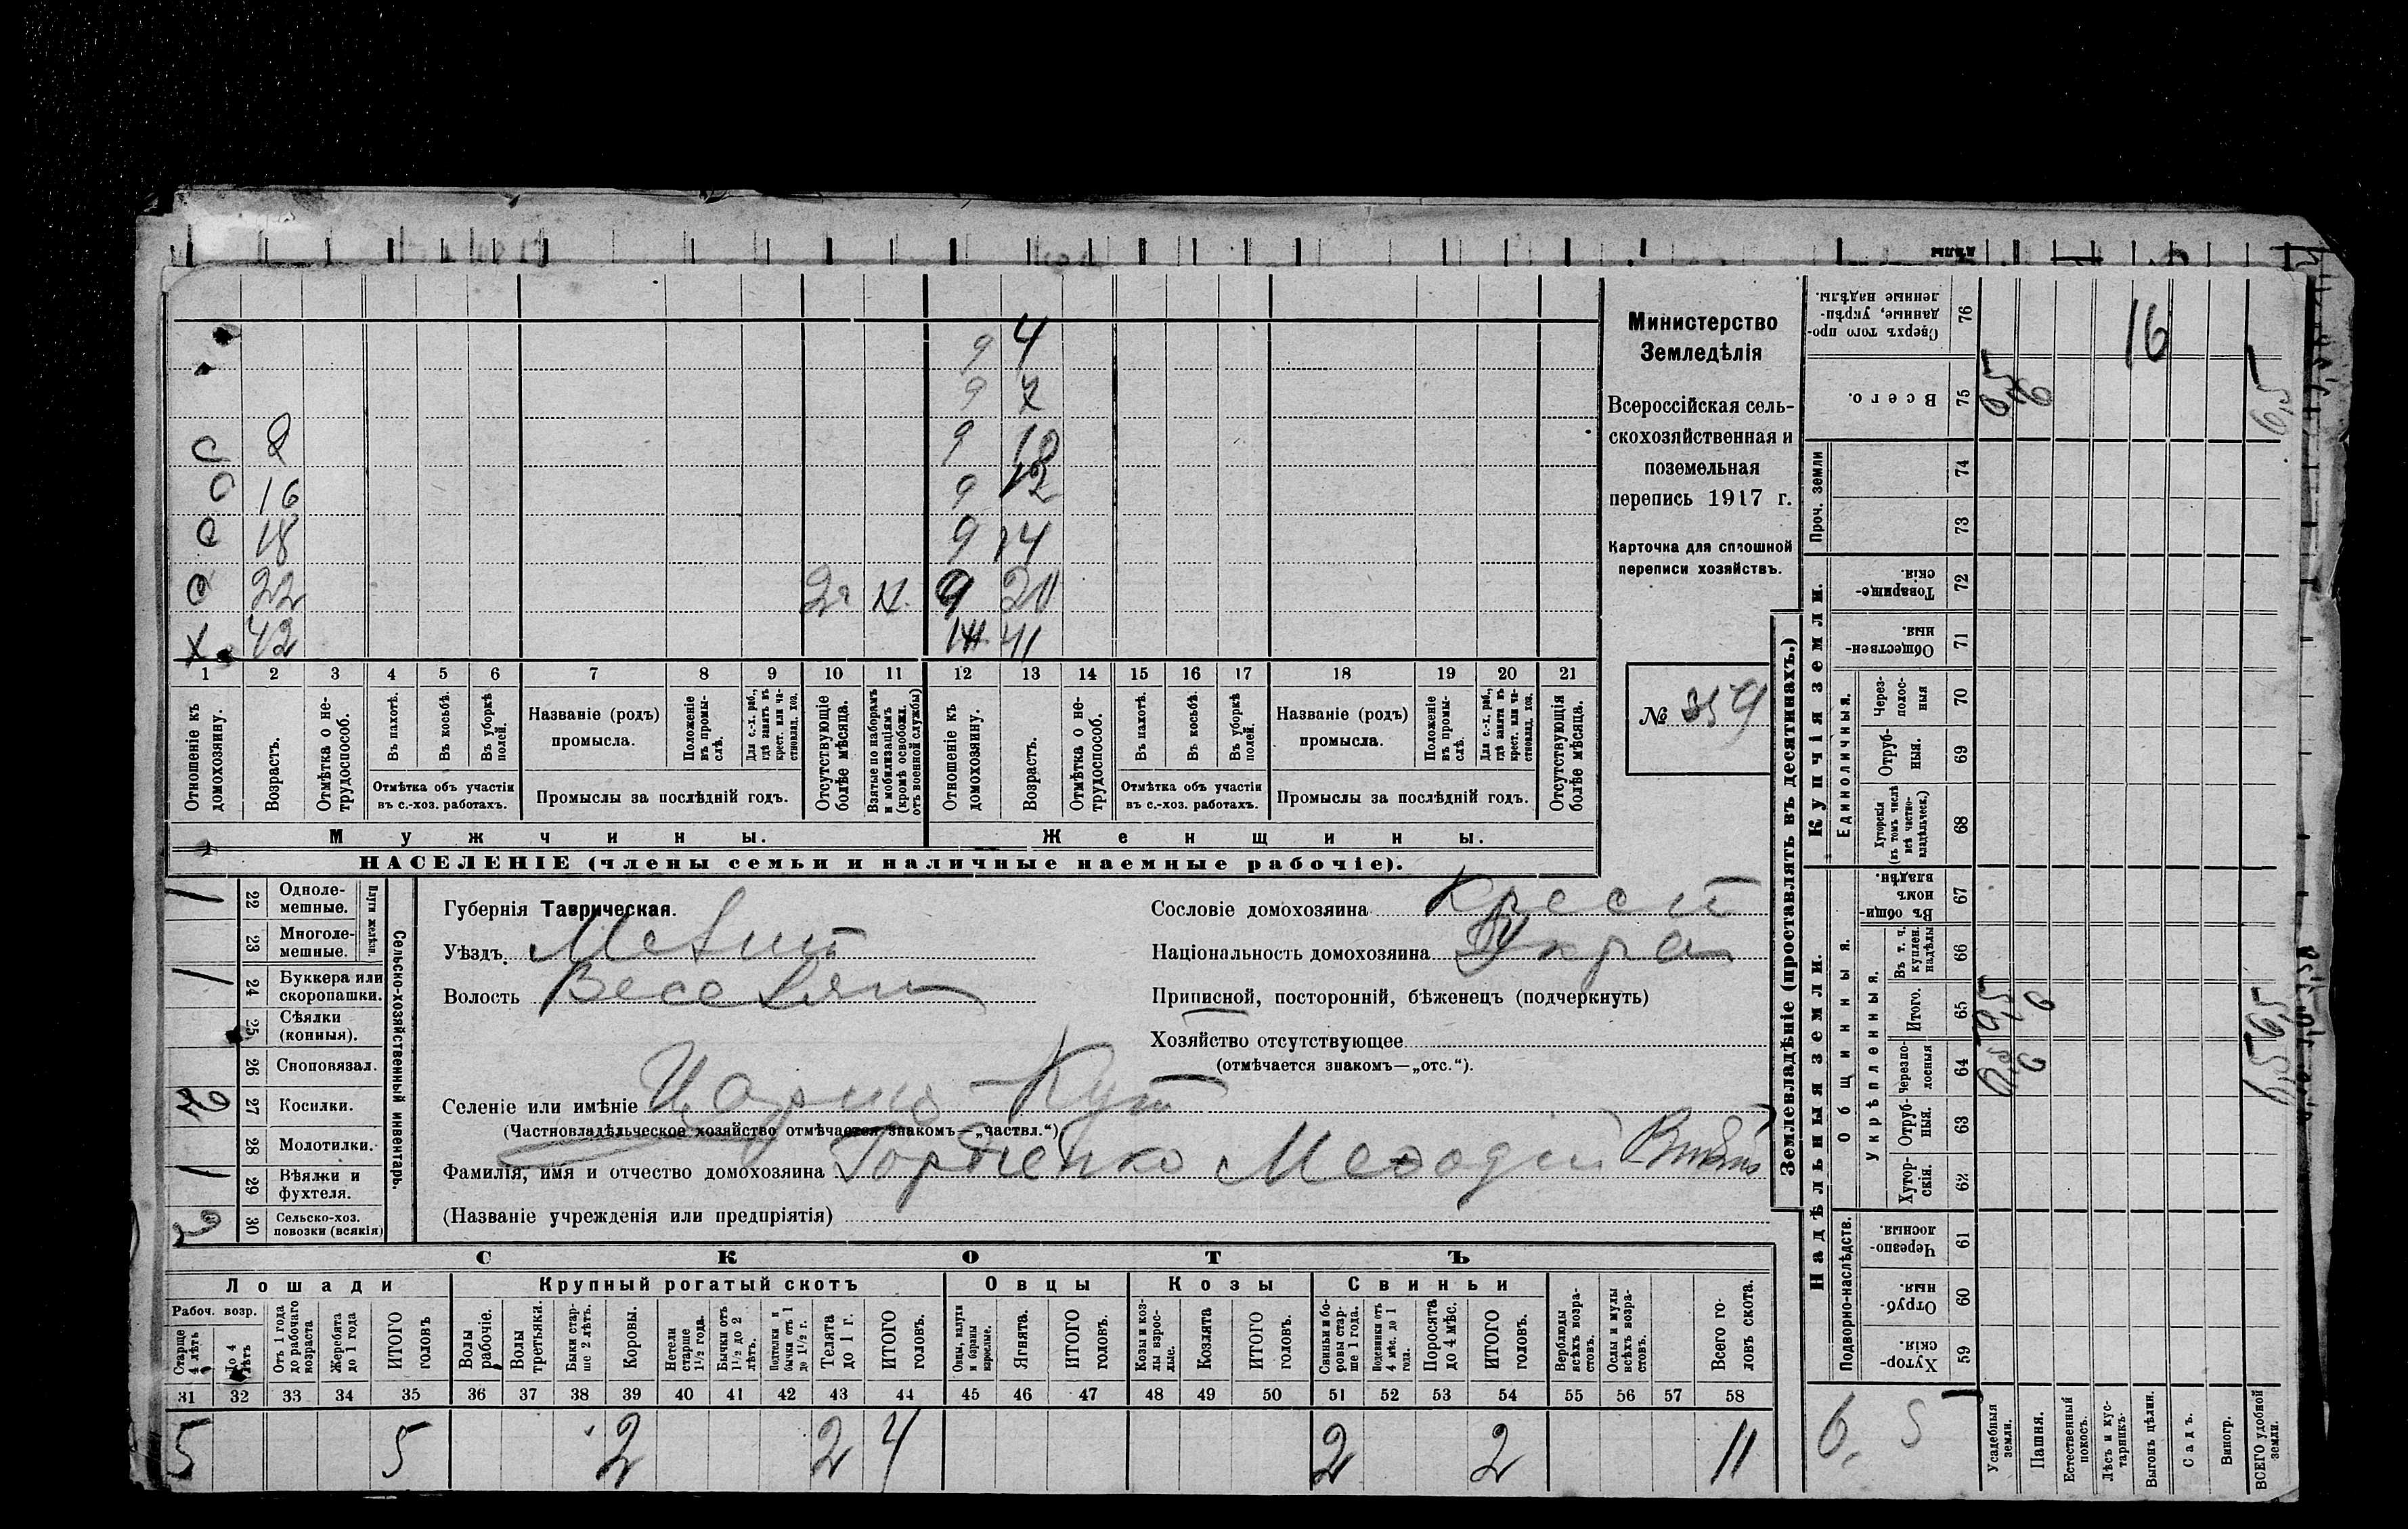 9 4
9
С 8 9 10
С 16 9 12
С 18 9 14
С 22 9 20
Х 42 Ж. 41
1 2 3 4 5 6 7 8 9 10 11 12 13 14 15 16 17 18 19 20 21
Отношеніе къ домохозяину.
Возрастъ.
Отмѣтка о нетрудоспособ.
Въ пахотѣ.
Въ косьбѣ.
Въ уборкѣ полей.
Отмѣтка объ участіи
въ с.-хоз. работахъ.
Названіе (родъ)
промысла.
Положеніе въ промыслѣ.
Для с.-х. раб., гдѣ занятъ въ крест. или частновлад. хоз.
Промыслы за послѣдній годъ.
Отсутствующіе болѣе мѣсяца.
Взятые по наборамъ и мобилизаціямъ (кромѣ освобожд. отъ военной службы)
Отношеніе къ домохозяину.
Возрастъ.
Отмѣтка о нетрудоспособ.
Въ пахотѣ.
Въ косьбѣ.
Въ уборкѣ полей.
Отмѣтка объ участіи
въ с.-хоз. работахъ.
Названіе (родъ)
промысла.
Положеніе въ промыслѣ.
Для с.-х. раб., гдѣ занята въ крест. или частновлад. хоз.
Промыслы за послѣдній годъ.
Отсутствующія болѣе мѣсяца.
Мужчины.
Женщины.
НАСЕЛЕНІЕ (члены семьи и наличные наемные рабочіе).
Министерство
Земледѣлія
Всероссійская сель-
скохозяйственная и
поземельная
перепись 1917 г.
Карточка для сплошной
переписи хозяйствъ.
№ 359
Сельско-хозяйственный инвентарь.
Плуги желѣзн.
1 22 Одноле-
мешные.
23 Многоле-
мешные.
1 24 Буккера или
скоропашки.
25 Сѣялки
(конныя).
26 Сноповязал.
27 Косилки.
28 Молотилки.
1 29 Вѣялки и
фухтеля.
2 30 Сельско-хоз.
повозки (всякія)
Губернія Таврическая.
Уѣздъ Мелит
Волость Веселян
Селеніе или имѣніе Царицо-Кут
(Частновладѣльческое хозяйство отмѣчается знакомъ—„частвл.“)
Фамилія, имя и отчество домохозяина Гордіенко Меѳодій
(Названіе учрежденія или предпріятія)
Сословіе домохозяина Крест
Національность домохозяина Укра
Приписной, посторонній, бѣженецъ (подчеркнуть)
Хозяйство отсутствующее
(отмѣчается знакомъ—„отс.“).
СКОТЪ
Лошади
Крупный рогатый скотъ
Овцы
Козы
Свиньи
Рабоч. возр.
Старше 4 лѣтъ
До 4 лѣтъ
Отъ 1 года до рабочаго возраста
Жеребята до 1 года
ИТОГО головъ
Волы рабочіе.
Волы третьяки.
Быки старше 2 лѣтъ.
Коровы.
Нетели старше 1½ года.
Бычки отъ 1½ до 2 лѣтъ.
Подтелки и бычки отъ 1 до 1½ г.
Телята до 1 г.
ИТОГО головъ.
Овцы, валухи и бараны взрослые.
Ягнята.
ИТОГО головъ.
Козы и козлы взрослые.
Козлята
ИТОГО головъ.
Свиньи и боровы старше 1 года.
Подсвинки отъ 4 мѣс. до 1 года.
Поросята до 4 мѣс.
ИТОГО головъ.
Верблюды всѣхъ возрастовъ.
Ослы и мулы всѣхъ возрастовъ.
Всего головъ скота.
31 32 33 34 35 36 37 38 39 40 41 42 43 44 45 46 47 48 49 50 51 52 53 54 55 56 57 58
5 5 2 2 4 2 2 11
Землевладѣніе (проставлять въ десятинахъ.)
Сверхъ того проданные, укрѣпленные надѣлы. 76 16
Всего. 75
Проч. земли 74
73
Купчія земли.
Товарищескія 72
Общественныя. 71
Единоличныя.
Черезполосныя 70
Отрубныя. 69
Хуторскія (въ томъ числѣ всѣ частновладѣльческ.) 68
Надѣльныя земли.
Общинныя.
Въ общинномъ владѣн. 67
Укрѣпленныя.
Въ т. ч. куплен. надѣлы 66
Итого. 65
Черезполосныя 64
Отрубныя. 63
Хуторскія. 62
Подворно-наслѣдств.
Черезполосныя. 61
Отрубныя. 60
Хуторскія. 59
6. 5
Усадебныя земли.
Пашня.
Естественный покосъ.
Лѣсъ и кустарникъ.
Выгонъ цѣлин.
Садъ.
Виногр.
ВСЕГО удобной земли.